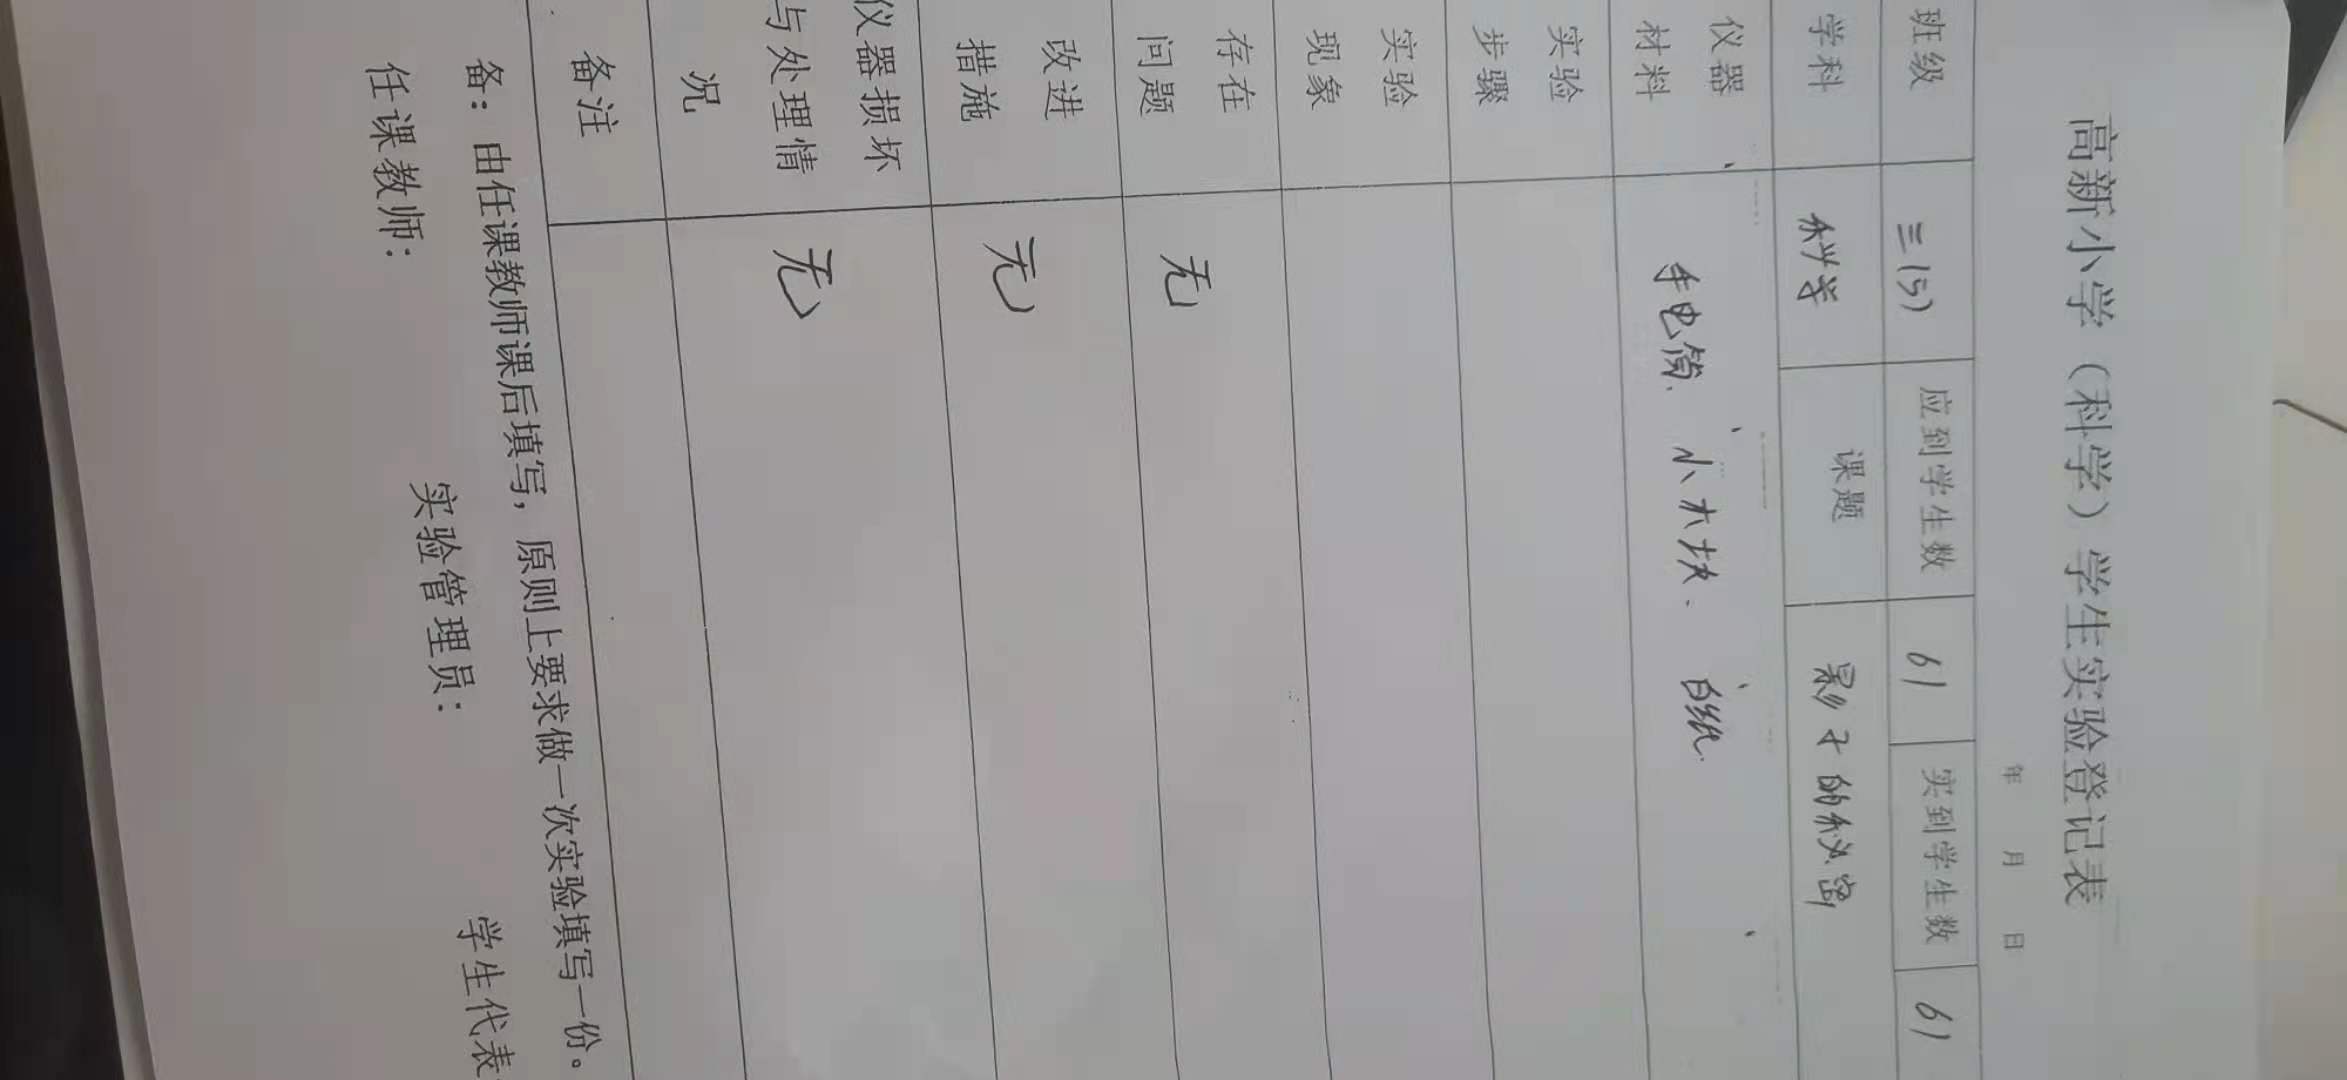 高新小学（科学）学生实验登记表
年 月 日
班级 三（5） 应到学生数 61 实到学生数 61
学科 科学 课题 影子的秘密
仪器
材料 手电筒、小木块、白纸
实验
步骤
实验
现象
存在
问题 无
改进
措施 无
仪器损坏
与处理情
况 无
备注
备：由任课教师课后填写，原则上要求做一次实验填写一份。
任课教师： 实验管理员： 学生代表